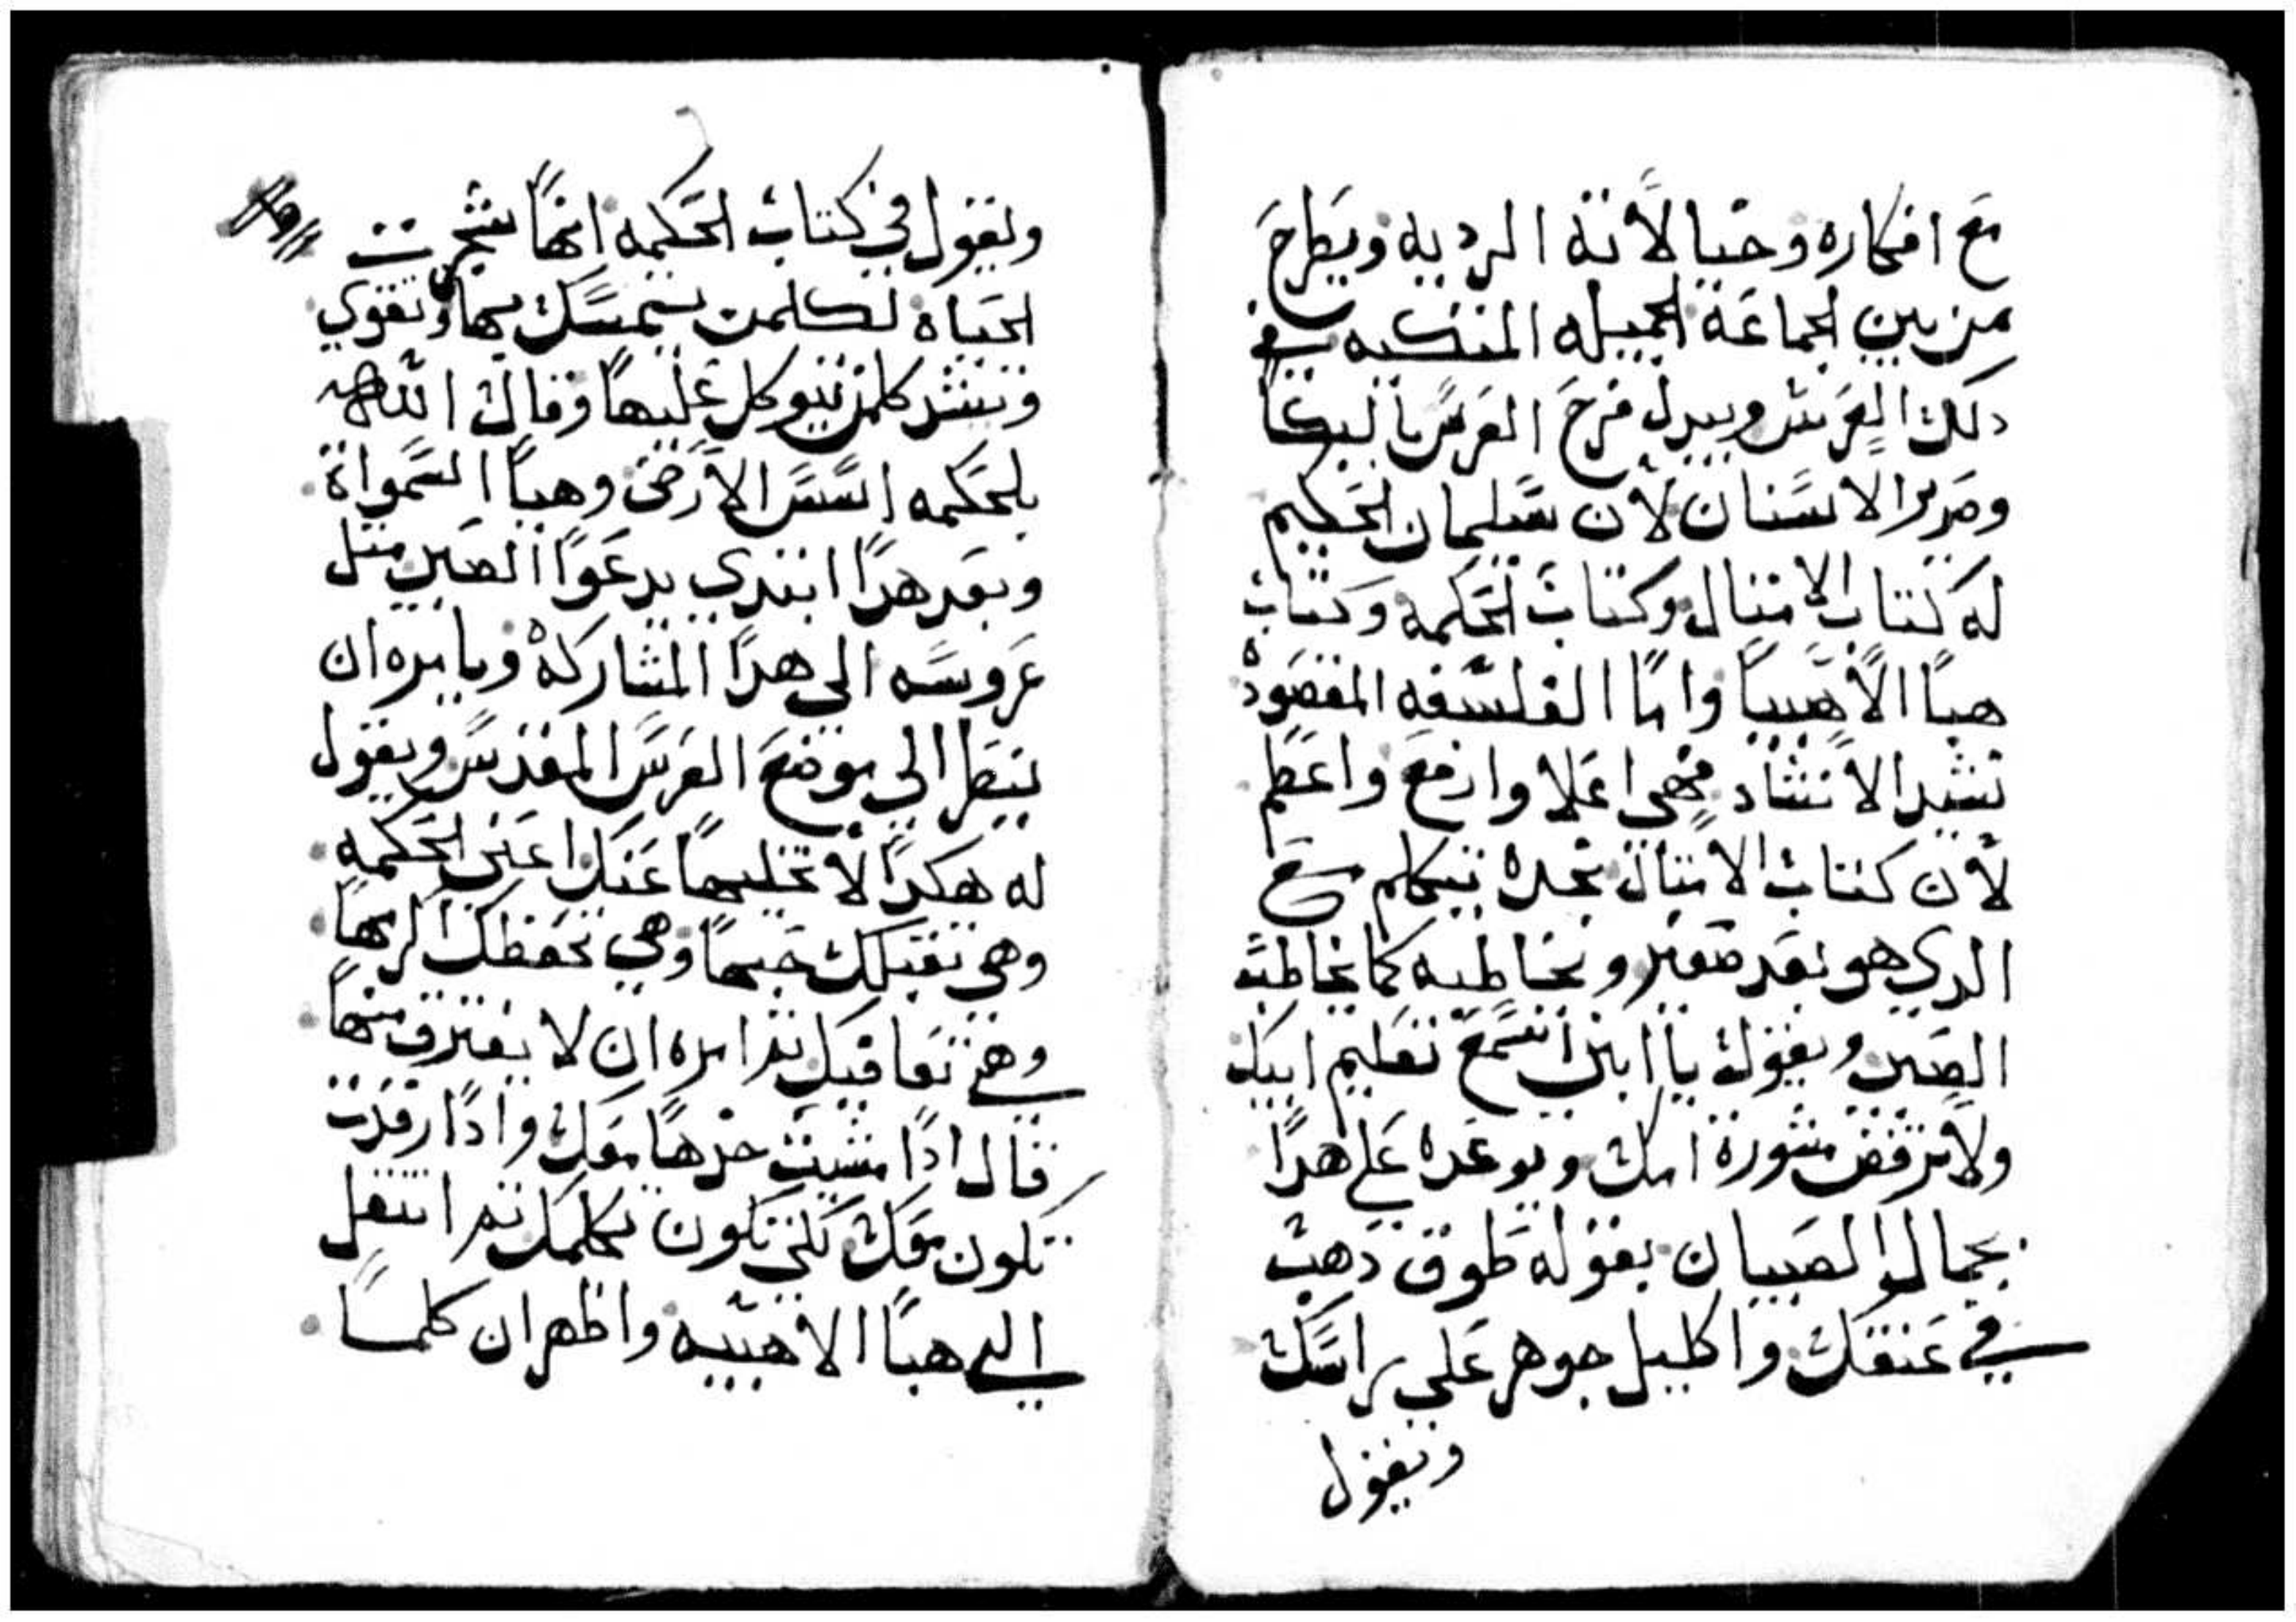 مع افكاره وخيالاته الرديه ويطرح
من بين الجماعة الجميله المتكيه في
دلك العرس ويبدل فرح العرس بالبكا
وصرير الاسنان لان سليمان الحكيم
له كتاب الامتال وكتاب الحكمه وكتاب
هبا الاهبيا واما الفلسفه المقصوده
نشيد الانشاد فهي اعلا وارفع واعظم
لان كتاب الامتال تجده يتكلم مع
الدي هو بعد صغير ويخاطبه كما يخاطب
الصبي ويقول يا ابني اسمع تعليم ابيك
ولا ترفض مشورة امك ويوعده علي هدا
بجمال الصبيان بقوله طوق دهب
في عنقك واكليل جوهر علي راسك
ويقول
ويقول في كتاب الحكمه انها شجرت
الحياه لكلمن يتمسك بها وتقوي
وتشد كلمن يتوكل عليها وقال الله
بلحكمه اسس الارض وهيا السمواة
وبعد هدا ابتدي يدعوا الصبي متل
عروسه الى هدا المشاركه ويامره ان
ينظر الي موضع العرس المقدس ويقول
له هكدا لا تخليها عنك اعني الحكمه
وهي تقبلك حبها وهي تحفظك اكرمها
وهي تعاقبك تم امره ان لا يفترق منها
قال ادا مشيت خدها معك وادا رقدت
تكون معك لكي تكون تكلمك تم انتقل
الي هبا الاهبيه واظهر ان كلما